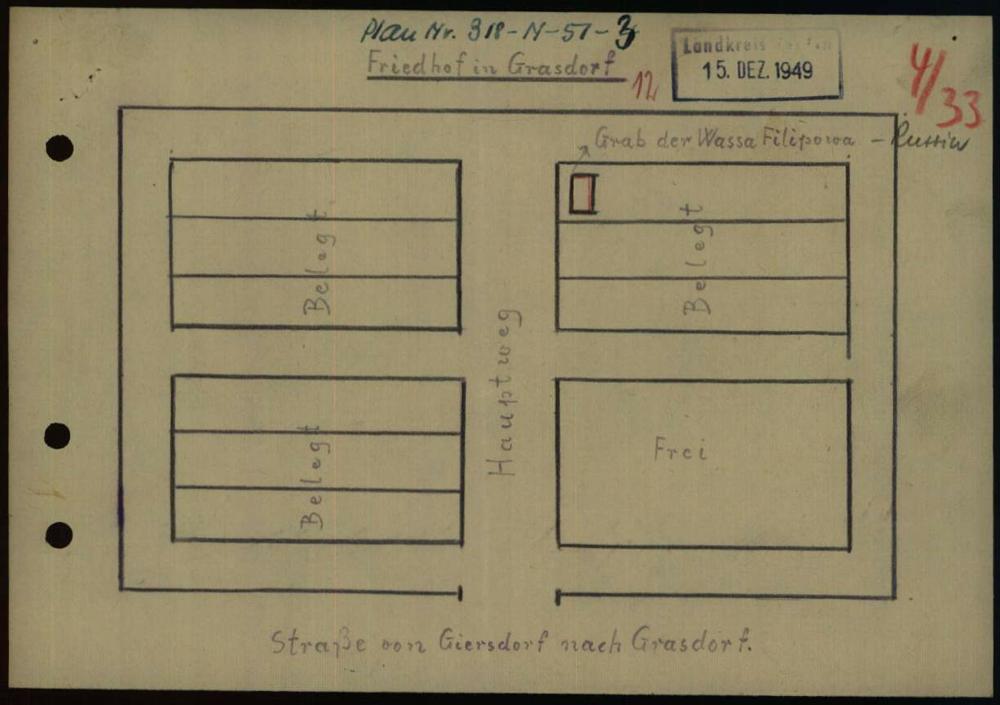 Plan Nr. 318-N-51-3
Friedhof in Grasdorf
12
Landkreis
15. DEZ. 1949
4/33
Grab der Wassa Filipowa – Russin
Belegt
Belegt
Hauptweg
Belegt
Frei
Straße von Giersdorf nach Grasdorf.